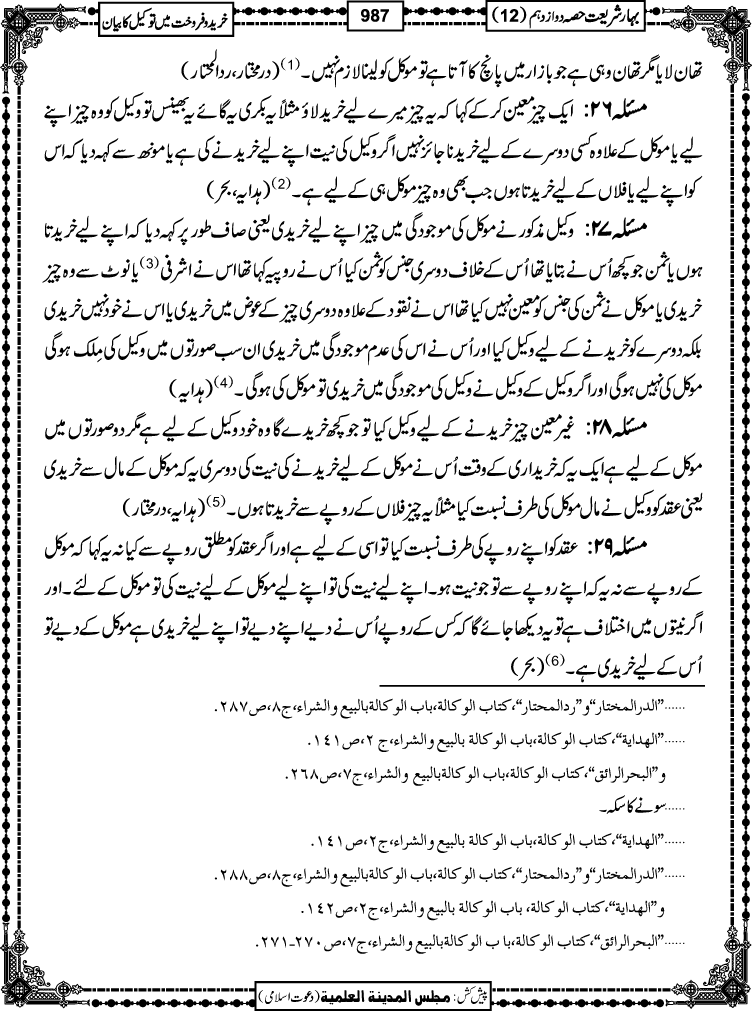 بہارشریعت حصہ دوازدہم (12)
987
خرید و فروخت میں توکیل کا بیان
تھان لایا مگر تھان وہی ہے جو بازار میں پانچ کا آتا ہے تو موکل کو لینا لازم نہیں۔(1) (درمختار، ردالمحتار)
مسئلہ ۲۶: ایک چیز معین کرکے کہا کہ یہ چیز میرے لیے خرید لاؤ مثلاً یہ بکری یہ گائے یہ بھینس تو وکیل کو وہ چیز اپنے
لیے یا موکل کے علاوہ کسی دوسرے کے لیے خریدنا جائز نہیں اگر وکیل کی نیت اپنے لیے خریدنے کی ہے یا مونھ سے کہہ دیا کہ اس
کو اپنے لیے یا فلاں کے لیے خریدتا ہوں جب بھی وہ چیز موکل ہی کے لیے ہے۔(2) (ہدایہ، بحر)
مسئلہ ۲۷: وکیل مذکور نے موکل کی موجودگی میں چیز اپنے لیے خریدی یعنی صاف طور پر کہہ دیا کہ اپنے لیے خریدتا
ہوں یا ثمن جو کچھ اُس نے بتایا تھا اُس کے خلاف دوسری جنس کو ثمن کیا اُس نے روپیہ کہا تھا اس نے اشرفی(3) یا نوٹ سے وہ چیز
خریدی یا موکل نے ثمن کی جنس کو معین نہیں کیا تھا اس نے نقود کے علاوہ دوسری چیز کے عوض میں خریدی یا اس نے خود نہیں خریدی
بلکہ دوسرے کو خریدنے کے لیے وکیل کیا اور اُس نے اس کی عدم موجودگی میں خریدی ان سب صورتوں میں وکیل کی مِلک ہوگی
موکل کی نہیں ہوگی اور اگر وکیل کے وکیل نے وکیل کی موجودگی میں خریدی تو موکل کی ہوگی۔(4) (ہدایہ)
مسئلہ ۲۸: غیر معین چیز خریدنے کے لیے وکیل کیا تو جو کچھ خریدے گا وہ خود وکیل کے لیے ہے مگر دو صورتوں میں
موکل کے لیے ہے ایک یہ کہ خریداری کے وقت اُس نے موکل کے لیے خریدنے کی نیت کی دوسری یہ کہ موکل کے مال سے خریدی
یعنی عقد کو وکیل نے مال موکل کی طرف نسبت کیا مثلاً یہ چیز فلاں کے روپے سے خریدتا ہوں۔(5) (ہدایہ، درمختار)
مسئلہ ۲۹: عقد کو اپنے روپے کی طرف نسبت کیا تو اسی کے لیے ہے اور اگر عقد کو مطلق روپے سے کیا نہ یہ کہا کہ موکل
کے روپے سے نہ یہ کہ اپنے روپے سے تو جو نیت ہو۔ اپنے لیے نیت کی تو اپنے لیے موکل کے لیے نیت کی تو موکل کے لئے۔ اور
اگر نیتوں میں اختلاف ہے تو یہ دیکھا جائے گا کہ کس کے روپے اُس نے دیے اپنے دیے تو اپنے لیے خریدی ہے موکل کے دیے تو
اُس کے لیے خریدی ہے۔(6) (بحر)
......”الدرالمختار“و”ردالمحتار“،کتاب الوکالة،باب الوکالةبالبیع والشراء،ج۸،ص۲۸۷.
......”الهدایة“،کتاب الوکالة،باب الوکالة بالبیع والشراء،ج ۲،ص۱٤۱.
و”البحرالرائق“،کتاب الوکالة،باب الوکالةبالبیع والشراء،ج۷،ص۲٦۸.
......سونے کا سکہ۔
......”الهدایة“،کتاب الوکالة،باب الوکالة بالبیع والشراء،ج۲،ص۱٤۱.
......”الدرالمختار“و”ردالمحتار“،کتاب الوکالة،باب الوکالةبالبیع والشراء،ج۸،ص۲۸۸.
و”الهدایة“،کتاب الوکالة، باب الوکالة بالبیع والشراء،ج۲،ص۱٤۲.
......”البحرالرائق“،کتاب الوکالة،باب الوکالةبالبیع والشراء،ج۷،ص۲۷۰-۲۷۱.
پیش کش: مجلس المدينة العلمية (دعوت اسلامی)